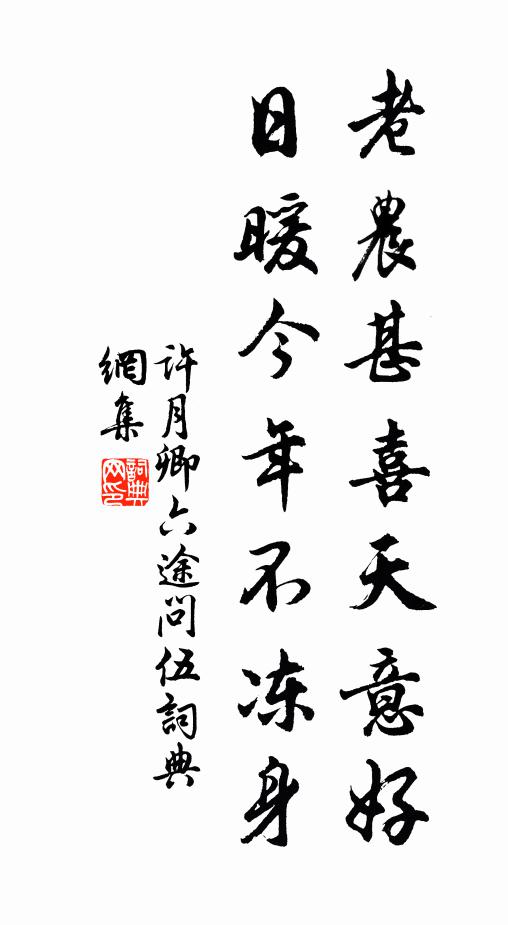 老農甚喜天意好
日暖今年不冻身
許月卿六途問伍詞典
網集
詞典網印